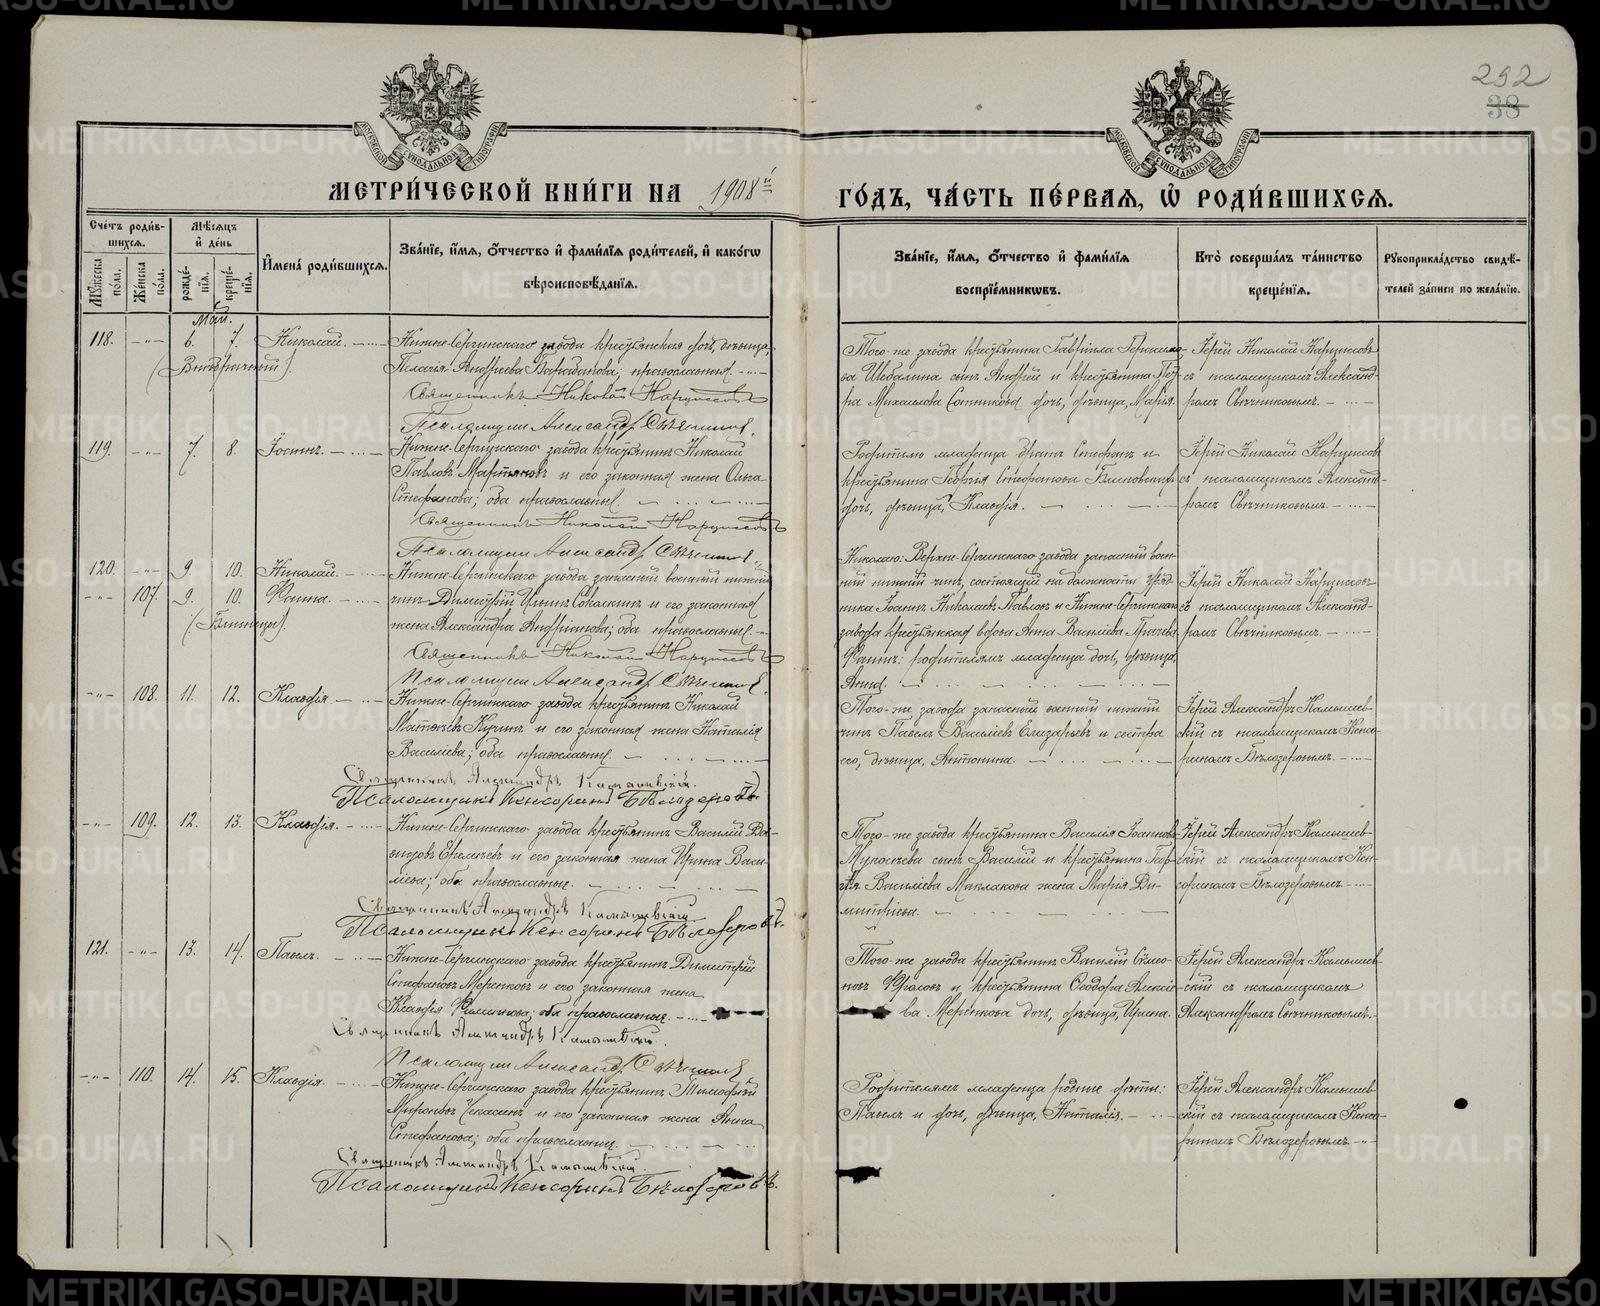 292
38
МЕТРИ́ЧЕСКОЙ КНИ́ГИ НА 1908й
ГО́ДЪ, ЧА́СТЬ ПЕ́РВАЯ, Ѽ РОДИ́ВШИХСЯ.
Сче́тъ роди́в-
шихся.
Му́жеска по́ла.
Же́нска по́ла.
Мѣ́сяцъ
и҆ де́нь
рожде́-
нїя.
креще́-
нїя.
И҆мена̀ роди́вшихся.
Зва́нїе, и҆́мя, ѻ҆́тчество и҆ фами́лїя роди́телей, и҆ како́гѡ
вѣроисповѣ́данїя.
Зва́нїе, и҆́мя, ѻ҆́тчество и҆ фами́лїя
воспрїе́мниковъ.
Кто̀ соверша́лъ та́инство
креще́нїя.
Рꙋкоприкла́дство свидѣ́-
телей за́писи по жела́нїю.
Май.
118. -„- 6. 7. Николай.
(Внѣбрачный).
Нижне-Сергинскаго завода крестьянская дочь, дѣвица,
Пелагія Андреева Барабанова; православная.
Священникъ Николай Нарциссовъ
Псаломщикъ Александр Свѣчников.
Того-же завода крестьянина Гавріила Герасимо-
ва Шебалина сынъ Андрей и крестьянина Пет-
ра Михаилова Сотникова дочь, дѣвица, Марія.
Іерей Николай Нарциссовъ
съ псаломщикомъ Александ-
ромъ Свѣчниковымъ.
119. -„- 7. 8. Іоаннъ.
Нижне-Сергинскаго завода крестьянинъ Николай
Павловъ Мартяновъ и его законная жена Ольга
Стефанова; оба православные.
Священникъ Николай Нарциссовъ
Псаломщикъ Александр Свѣчников.
Родителю младенца братъ Стефанъ и
крестьянина Георгія Стефанова
дочь, дѣвица, Клавдія.
Іерей Николай Нарциссовъ
съ псаломщикомъ Александ-
ромъ Свѣчниковымъ.
120. -„- 9. 10. Николай.
-„- 107. 9. 10. Фаина.
(Близнецы).
Нижне-Сергинскаго завода запасный военный нижній
чинъ Димитрій Ильинъ Соколкинъ и его законная
жена Александра Андріанова; оба православные.
Священникъ Николай Нарциссовъ
Псаломщикъ Александр Свѣчников.
Николаю: Верхне-Сергинскаго завода запасный воен-
ный нижній чинъ, состоящій на должности уряд-
ника Іоаннъ Николаевъ Павловъ и Нижне-Сергинскаго
завода крестьянская вдова Анна Василіева Грачева.
Фаинѣ: родителямъ младенца дочь, дѣвица,
Анна.
Іерей Николай Нарциссовъ
съ псаломщикомъ Александ-
ромъ Свѣчниковымъ.
-„- 108. 11. 12. Клавдія.
Нижне-Сергинскаго завода крестьянинъ Николай
Матѳеевъ и его законная жена Наталія
Василіева; оба православные.
Священникъ Александръ Камышевскій.
Псаломщикъ Кенсоринъ Бѣлозеровъ.
Того-же завода запасный военный нижній
чинъ Павелъ Василіевъ Елизарьевъ и сестра
его, дѣвица, Антонина.
Іерей Александръ Камышев-
скій съ псаломщикомъ Кенсо-
риномъ Бѣлозеровымъ.
-„- 109. 12. 13. Клавдія.
Нижне-Сергинскаго завода крестьянинъ Василій
Еремѣевъ и его законная жена Ирина Васи-
ліева; оба православные.
Священникъ Александръ Камышевскій
Псаломщикъ Кенсоринъ Бѣлозеровъ.
Того-же завода крестьянина Василія Іоаннова
сынъ Василій и крестьянина Геор-
гія Василіева Маклакова жена Марія Ди-
митріева.
Іерей Александръ Камышев-
скій съ псаломщикомъ Кен-
сориномъ Бѣлозеровымъ.
121. -„- 13. 14. Павелъ.
Нижне-Сергинскаго завода крестьянинъ Димитрій
Стефановъ Мерзляковъ и его законная жена
Клавдія; оба православные.
Священникъ Александръ Камышевскій.
Псаломщикъ Александр Свѣчников
Того-же завода крестьянинъ Василій Симео-
новъ Фроловъ и крестьянина Ѳеодора Алексѣе-
ва дочь, дѣвица, Ирина.
Іерей Александръ Камышев-
скій съ псаломщикомъ
Александромъ Свѣчниковымъ.
-„- 110. 14. 15. Клавдія.
Нижне-Сергинскаго завода крестьянинъ Тимоѳей
Мироновъ Чекасинъ и его законная жена Анна
Стефанова; оба православные.
Священникъ Александръ Камышевскій.
Псаломщикъ Кенсоринъ Бѣлозеровъ.
Родителямъ младенца родные дѣти:
Павелъ и дочь, дѣвица, Наталія.
Іерей Александръ Камышев-
скій съ псаломщикомъ Кенсо-
риномъ Бѣлозеровымъ.
METRIKI.GASO-URAL.RU